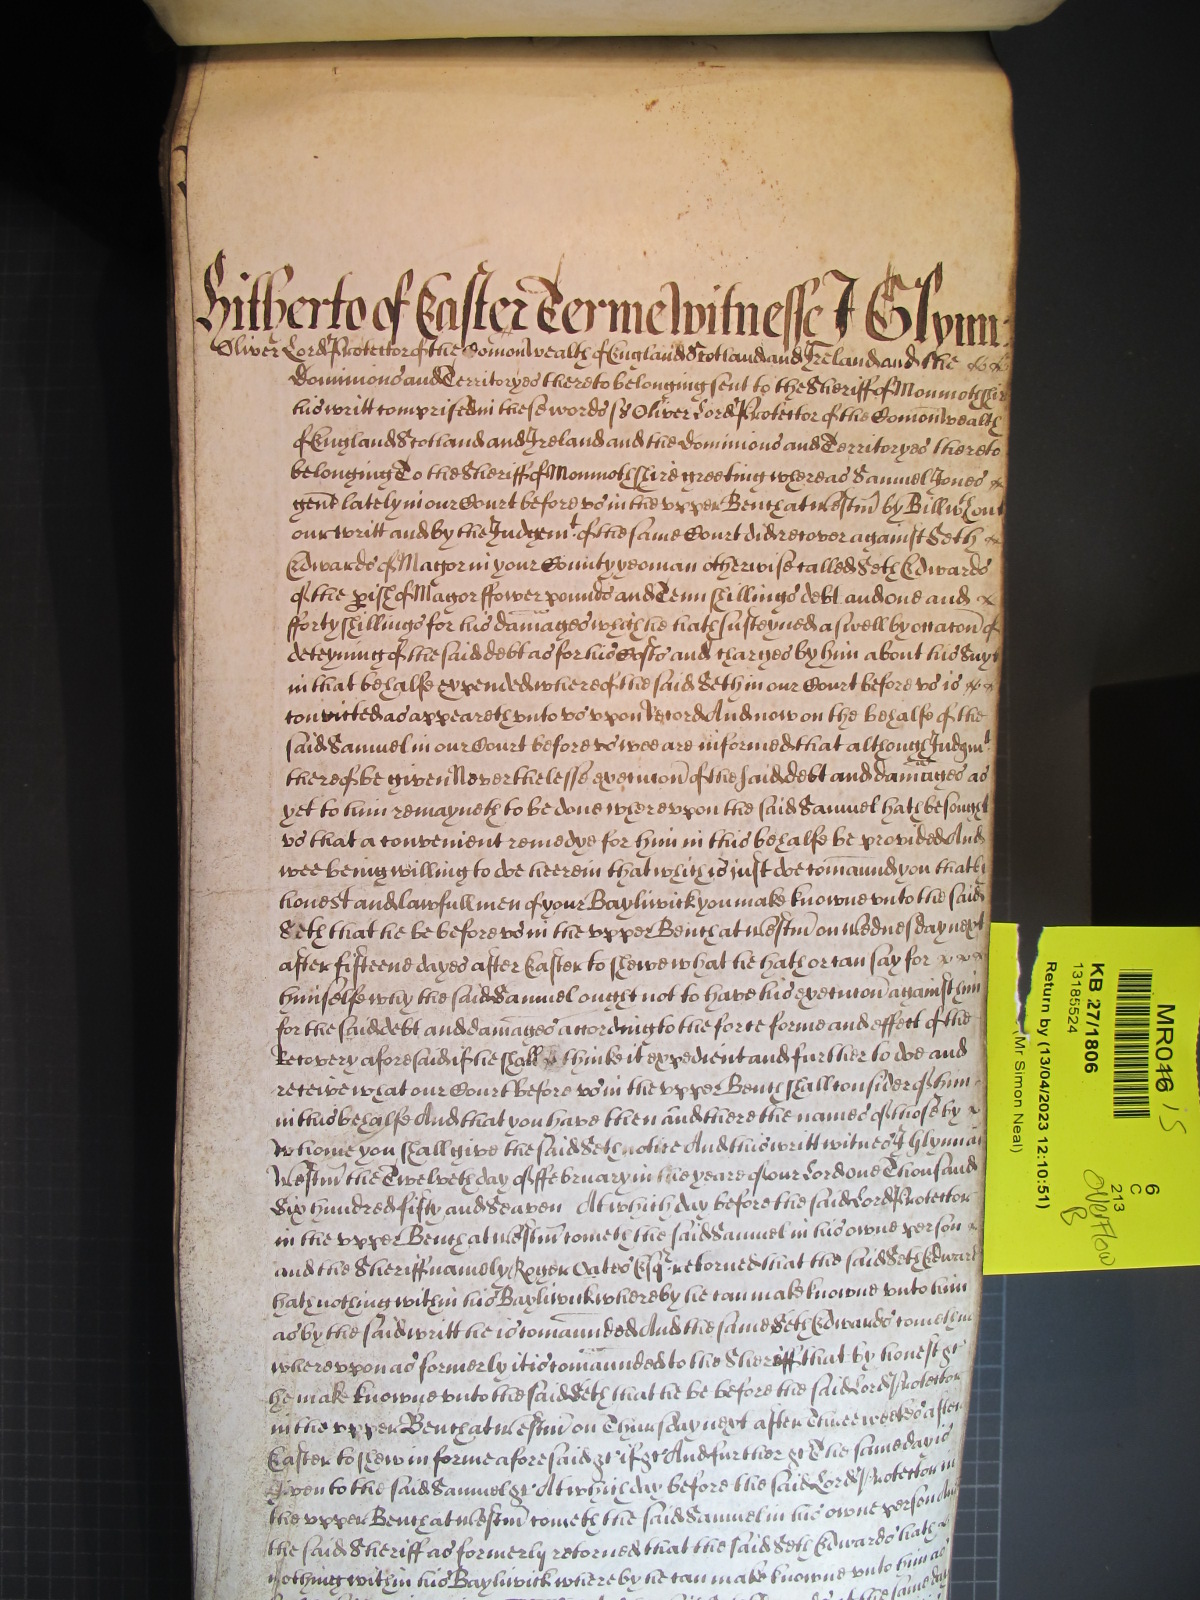 Hitherto of Easter Terme Witnesse J Glynn:
Oliver Lord Protector of the Comonwealth of England Scotland and Ireland and the
Dominions and Territoryes thereto belonging sent to the Sheriff of Monmothshire
his writt comprised in these words ss Oliver Lord Protector of the Comonwealth
of England Scotland and Ireland and the Dominions and Territoryes thereto
belonging To the Sheriff of Monmothshire greeting whereas Samuel Jones
gent lately in our Court before vs in the vpper Bench at Westm by Bill wthout
our writt and by the Judgemt of the same Court did recover against Seth
Edwards of Magor in your County yeoman otherwise called Seth Edwards
of the pish of Magor ffower pounds and Tenn shillings debt and one and
fforty shillings for his damages which he hath susteyned aswell by occacon of
deteyning of the said debt as for his Costs and charges by him about his Suyt
in that behalfe expended whereof the said Seth in our Court before vs is
convicted as appeareth vnto vs vpon Record And now on the behalfe of the
said Samuel in our Court before vs wee are informed that although Judgmt
thereof be given Neverthelesse execucon of the said debt and damages as
yet to him remayneth to be done wherevpon the said Samuel hath besought
vs that a convenient remedye for him in this behalfe be provided And
wee being willing to doe herein that which is just doe comaund you that by
honest and lawfull men of your Bayliwick you make knowne vnto the said
Seth that he be before vs in the vpper Bench at Westm on Wednesday next
after fifteene dayes after Easter to shewe what he hath or can say for
himselfe why the said Samuel ought not to have his execucon against him
for the said debt and damages according to the force forme and effect of the
Recovery aforesaid if he shall thinke it expedient and further to doe and
receive what our Court before vs in the vpper Bench shall consider of him
in this behalfe And that you have then and there the names of those by
whome you shall give the said Seth notice And this writt witnes J Glynn at
Westm the Twelveth day of ffebruary in the yeare of our Lord one Thousand
Six hundred fifty and Seaven At which day before the said Lord Protector
in the vpper Bench at Westm cometh the said Samuel in his owne person
and the Sheriff namely Roger Oates Esqr retorned that the said Seth Edwards
hath nothing within his Bayliwick whereby he can make knowne vnto him
as by the said writt he is comaunded And the same Seth Edwards cometh not
wherevpon as formerly it is comaunded to the Sheriff that by honest &c
he make knowne vnto the said Seth that he be before the said Lord Protector
in the vpper Bench at Westm on Thursday next after Three weekes after
Easter to shew in forme aforesaid &c if &c And further &c The same day is
given to the said Samuel &c At which day before the said Lord Protector in
the vpper Bench at Westm cometh the said Samuel in his owne person And
the said Sheriff as formerly retorned that the said Seth Edwards hath
nothing within his Bayliwick whereby he can make knowne vnto him as
the same day
MR016
15
KB 27/1806
13185524
Return by (13/04/2023 12:10:51)
(Mr Simon Neal)
6
C
213
Overflow
B